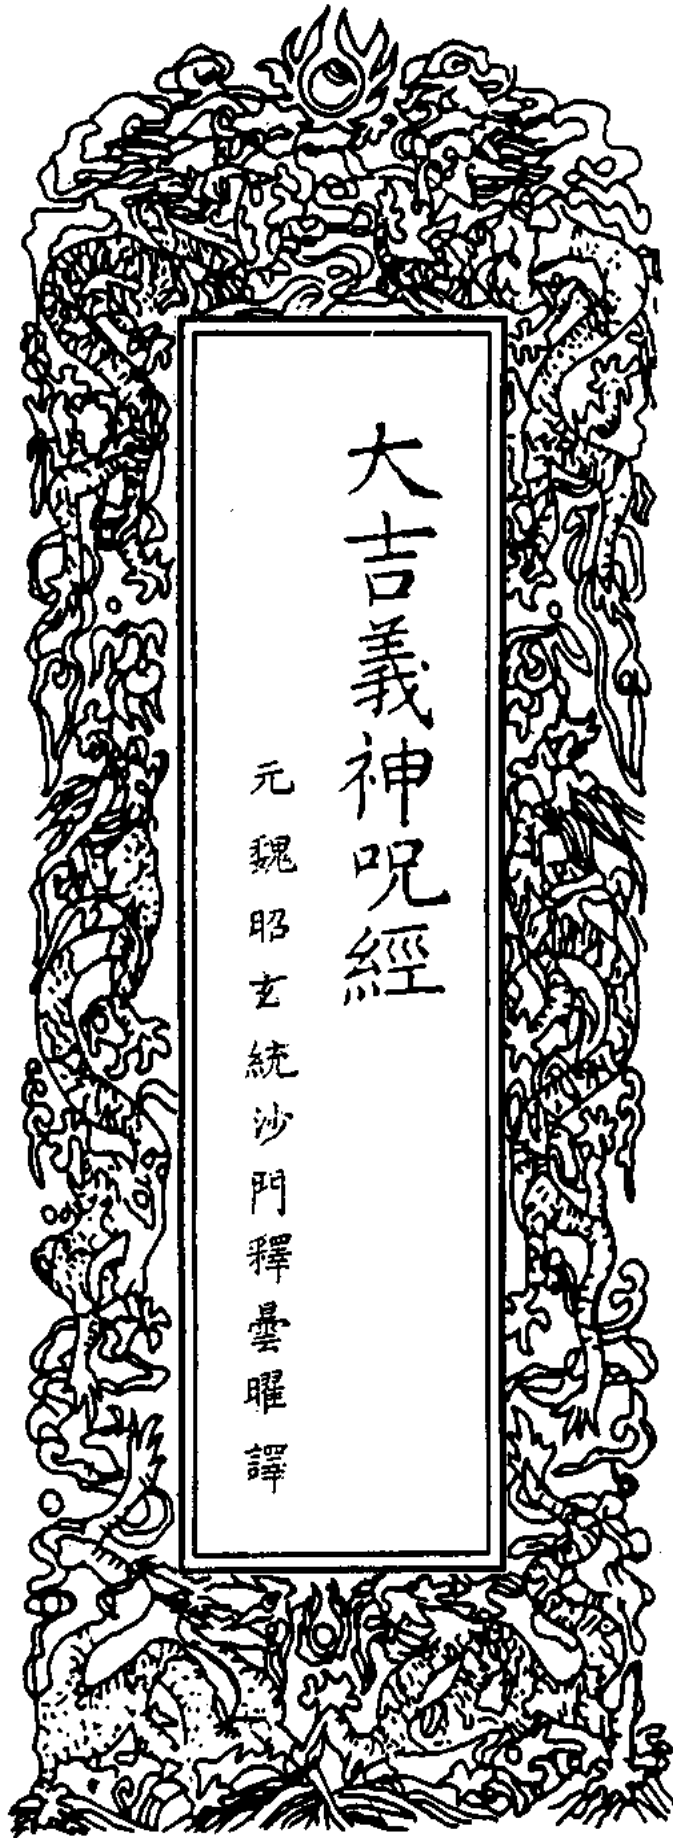 大吉義神呪經
元魏昭玄統沙門釋曇曜譯